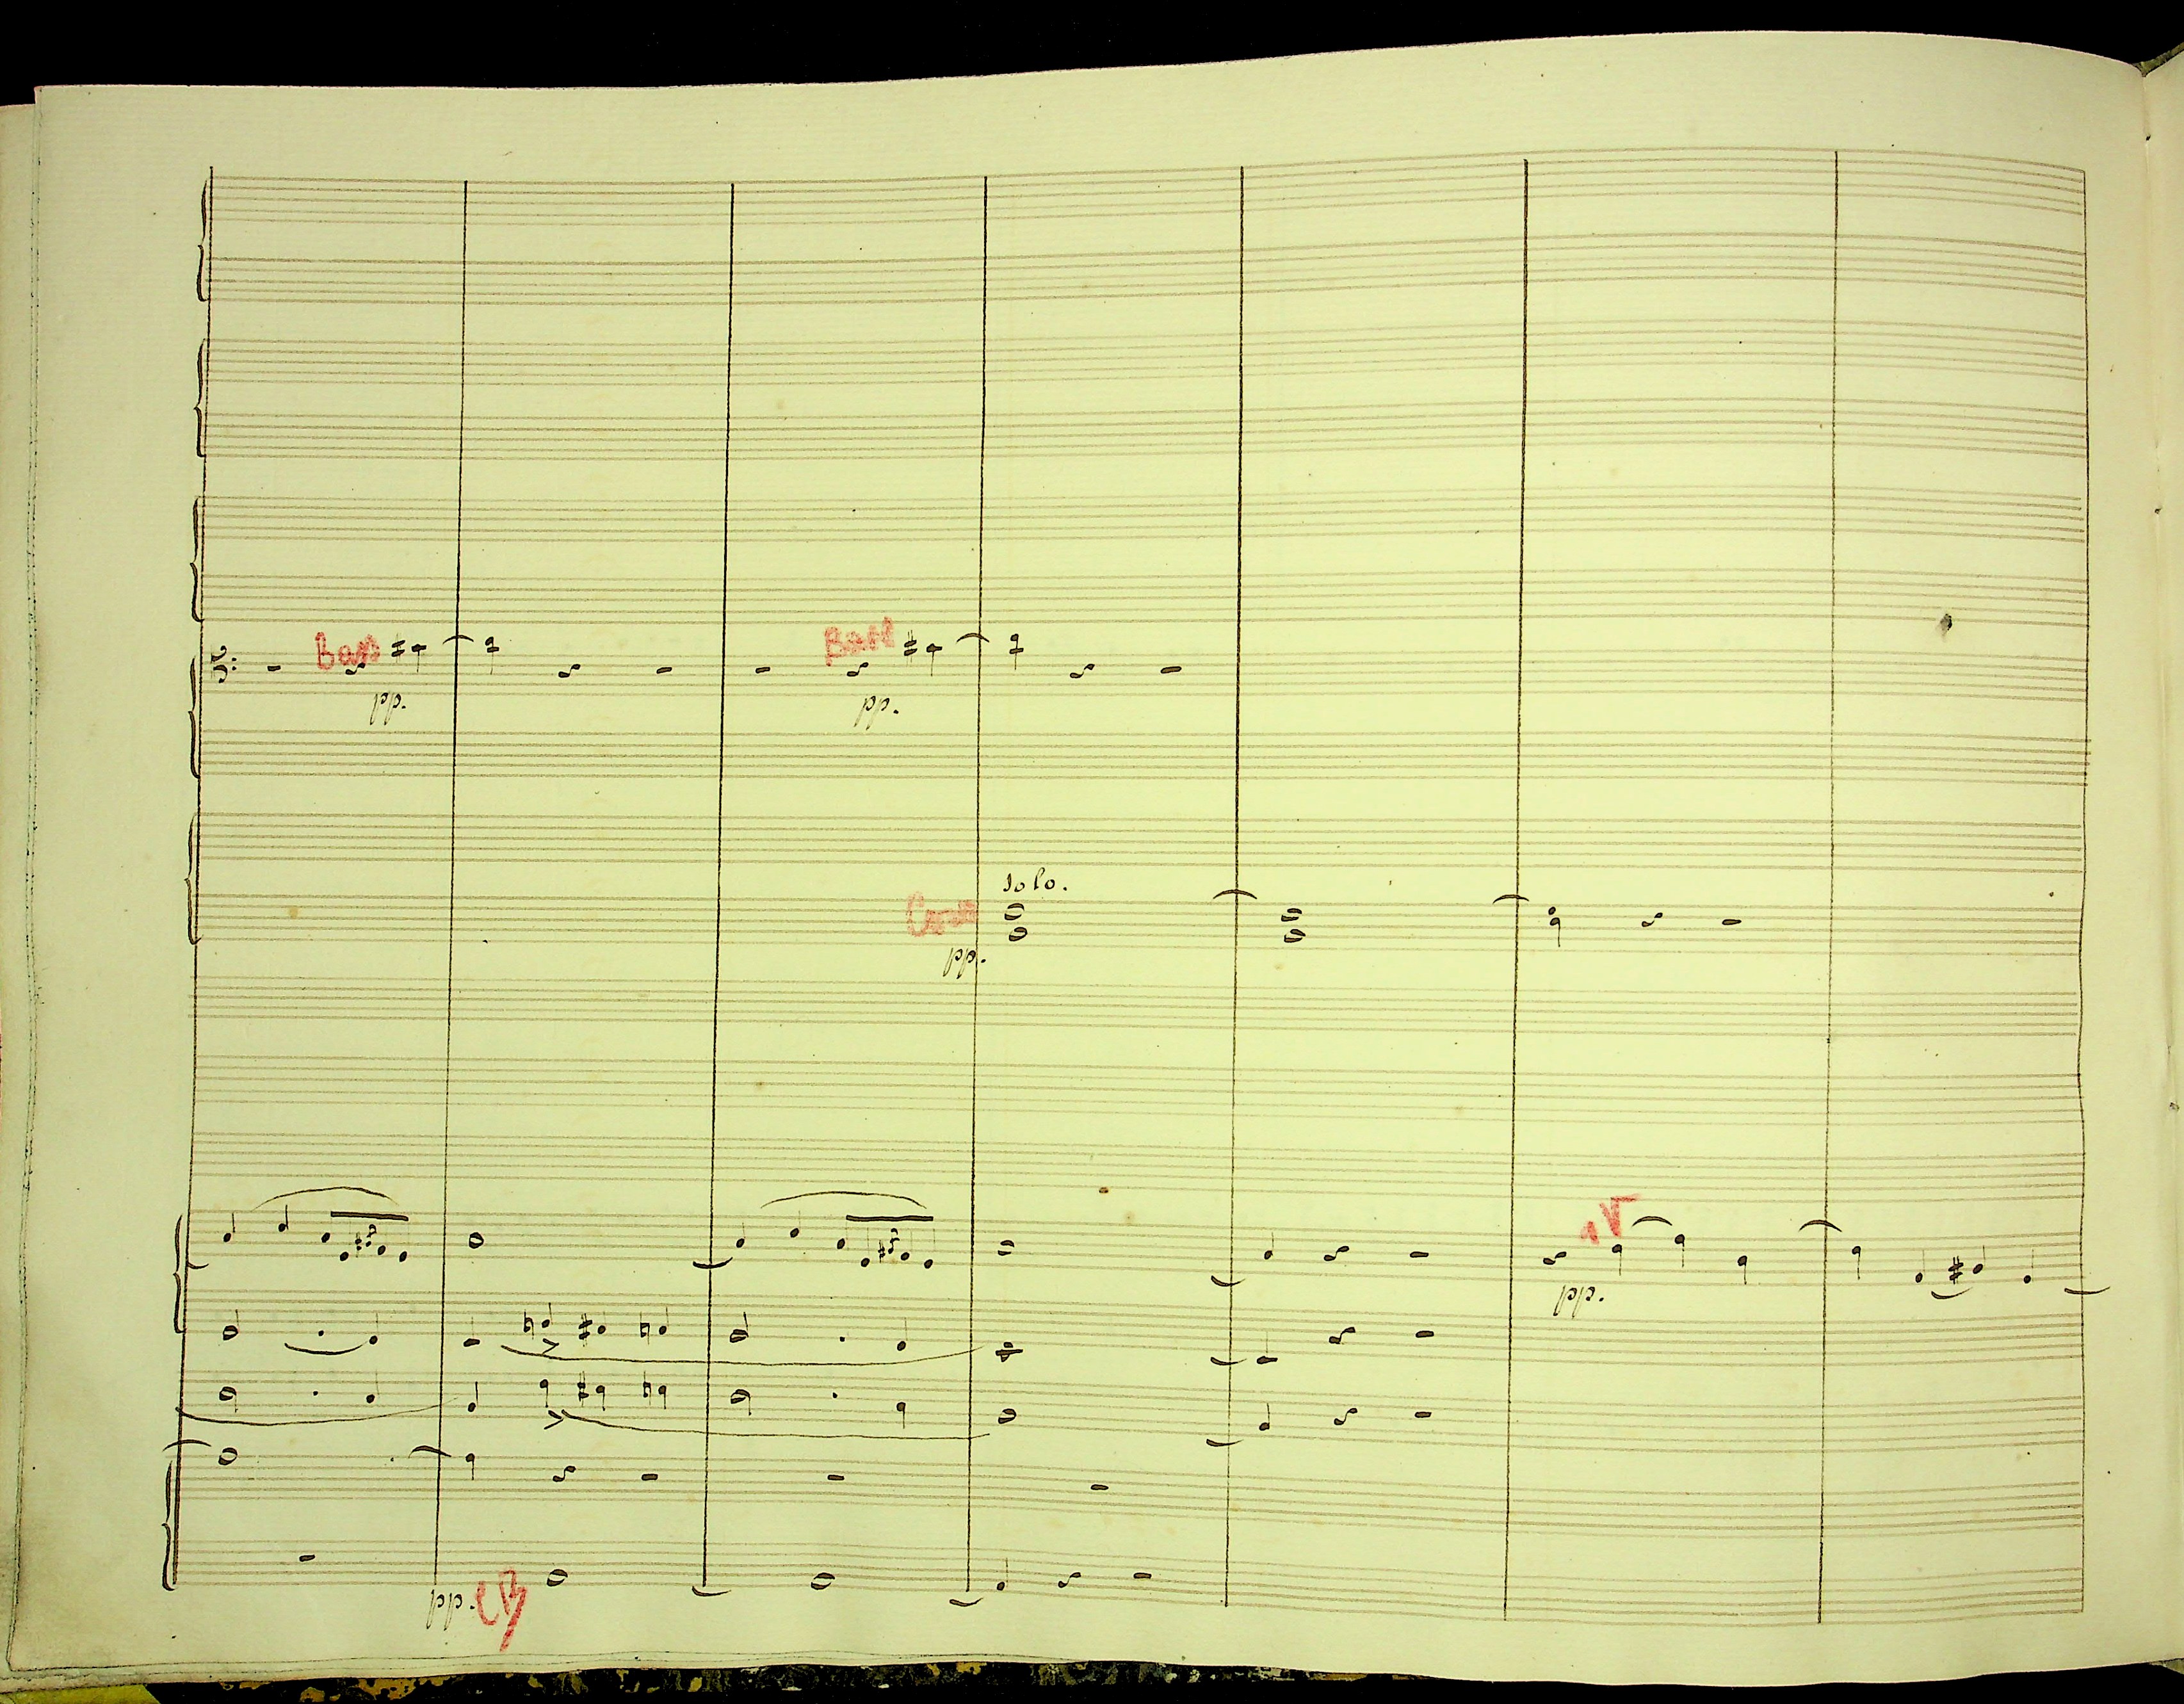 Bass Bass
pp. pp.
Solo.
Corni
pp.
1 V
pp.
pp. CB